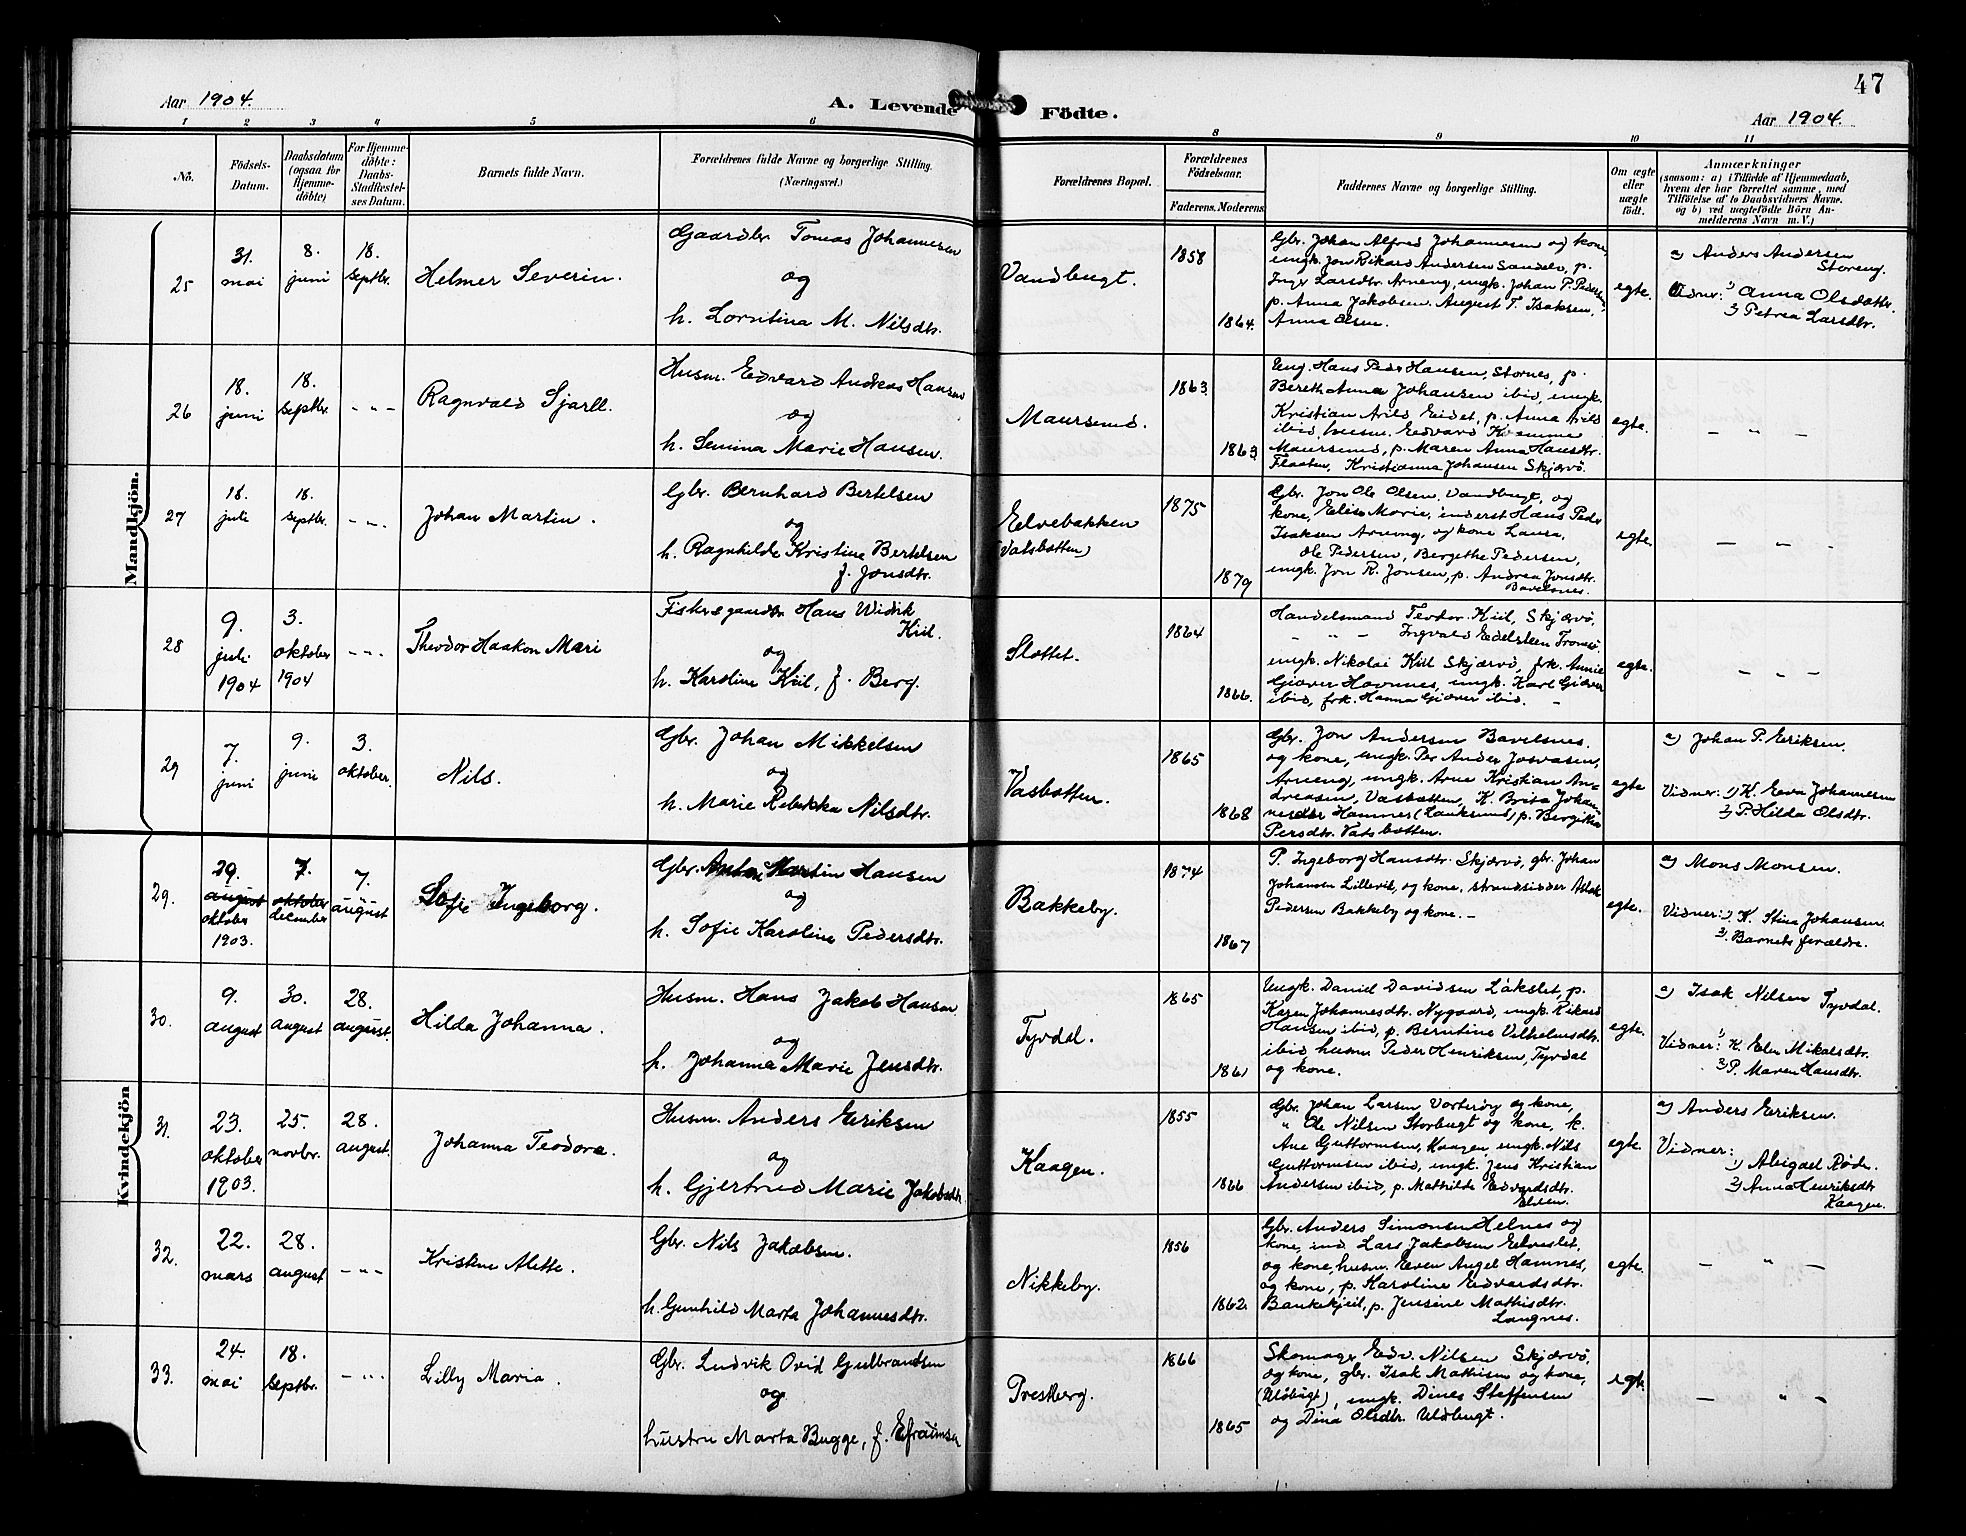 47
Aar 1904.
A. Levende Födte.
Aar 1904.
1 2 3 4 5 6 8 9 10 11
No.
Födsels-
Datum.
Daabsdatum
(ogsaa for
Hjemme-
döbte)
For Hjemme-
döbte:
Daabs-
Stadfæstel-
ses Datum.
Barnets fulde Navn.
Forældrenes fulde Navne og borgerlige Stilling.
(Næringsvei.)
Forældrenes Bopæl.
Forældrenes
Födselsaar.
Faderens. Moderens
Faddernes Navne og borgerlige Stilling.
Om ægte
eller
uægte
födt.
Anmærkninger
(saasom: a) i Tilfælde af Hjemmedaab,
hvem der har forrettet samme, med
Tilföielse af to Daabsvidners Navne.
og b) ved uægtefödte Börn An-
melderens Navn m. V.)
Mandkjön.
25
31.
mai
8.
juni
18.
septbr.
Helmer Severin.
Gaardbr. Tomas Johannesen
og
h. Lorntina M. Nilsdtr.
Vandbugt.
1858
1864.
Gbr. Johan Alfred Johannesen og kone,
ungk. Jon Rikard Andersen Sandelv, p.
Inger Larsdtr. Arneng, ungk. Johan P. Pedersen,
p. Anna Jakobsen. August T. Isaksen,
Anna Olsen.
egte.
a) Anders Andersen
Storeng.
Vidner: 1) Anna Olsdattr.
2) Petrea Larsdtr.
26
18.
juni
18.
septbr.
- " -
Ragnvald Sjarll.
Husm. Edvard Andreas Hansen
og
h. Semina Marie Hansen.
Maursund.
1863
1863.
Ung. Hans Peder Hansen, Stornes, p.
Bereth Anna Johansen ibid, ungk.
Kristian Arild Eidet, p. Anna Arild
ibid, husm. Edvard
Maursund, p. Maren Anna Hansdtr.
Flaaten, Kristianna Johansen Skjærvö.
egte.
- " -
27
18.
juli
18.
septbr.
- " -
Johan Martin.
Gbr. Bernhard Bertelsen
og
h. Ragnhilde Kristine Bertelsen
f. Jonsdtr.
Elvebakken
(Vatsbotten)
1875
1879
Gbr. Jon Ole Olsen, Vandbugt, og
kone, Elise Marie, inderst Hans Peder
Isaksen Arneng, og kone Laura,
Ole Pedersen, Bergethe Pedersen,
ungk. Jon R. Jonsen, p. Andrea Jonsdtr.
Bavelsnes.
egte.
- - -
28
9.
juli
1904
3.
oktober
1904
- " -
Theodor Haakon Mari
Fisker & gaardbr. Hans Widik
Kiil.
og
h. Karoline Kiil, f. Berg.
Slottet.
1864
1866.
Handelsmand Teodor Kiil, Skjærvö,
- " - Ingvald Edelsteen Tromsö,
ungk. Nikolai Kiil Skjærvö, frk. Annie
Giæver Havnnes, ungk. Karl Giæver
ibid, frk. Hanna Giæver ibid. -
egte.
- - -
29
7.
juni
9.
juni
3.
oktober
Nils.
Gbr. Johan Mikkelsen
og
h. Marie Rebekka Nilsdtr.
Vasbotten.
1865
1868
Gbr. Jon Andersen Bavelsnes.
og kone, ungk. Per Ander Josvasen,
Arneng, ungk. Arne Kristian An-
dreasen, Vasbotten, K. Brita Johan-
nesdtr Hamnes (Lauksund) p. Bergithe
Persdtr. Vatsbotten.
egte
a) Johan P. Eriksen.
Vidner: 1) K. Eva Johannesen
2) P. Hilda Olsdtr.
Kvindekjön
29.
29.
august
oktober
1903.
7.
oktober
december
7.
august
Sofie Ingeborg.
Gbr. Anton Martin Hansen
og
h. Sofie Karoline Pedersdtr.
Bakkeby.
1874
1867
P. Ingeborg Hansdtr. Skjærvö, gbr. Johan
Johansen Lillevik, og kone, strandsidder Aslak
Pedersen Bakkeby og kone. -
egte.
a) Mons Monsen.
Vidner: 1) K. Stina Johansen.
2) Barnets forældre.
30.
9.
august
30.
august
28.
august.
Hilda Johanna.
Husm. Hans Jakob Hansen
og
h. Johanna Marie Jensdtr.
Tyvdal.
1865
1861
Ungk. Daniel Davidsen Låkslet, p.
Karen Johannesdtr. Nygaard, ungk. Rikard
Hansen ibid, p. Berntine Vilhelmsdtr.
ibid, husm. Peder Henriksen, Tyvdal
og kone.
egte.
a) Isak Nilsen Tyvdal.
Vidner: 1) K. Elen Mikalsdtr.
2) P. Maren Hansdtr.
31.
23.
oktober
1903.
25.
novbr.
28.
august.
Johanna Teodora.
Husm. Anders Eriksen
og
h. Gjertrud Marie Jakobsdtr
Kaagen.
1855
1866
Gbr. Johan Larsen Vorterøy og kone,
" Ole Nilsen Storbugt og kone, k.
Ane Guttormsen, Kaagen, ungk. Nils
Guttormsen ibid, ungk. Jens Kristian
Andersen ibid, p. Mathilde Edvardsdtr.
Elven.
egte.
a) Anders Eriksen.
Vidner:
1) Abigael Røde.
2) Anna Henriksdtr
Kaagen.
32.
22.
mars
28.
august
- " -
Kristine Alette.
Gbr. Nils Jakobsen.
h. Gunhild Marta Johannesdtr.
Nikkeby.
1856
1862.
Gbr. Anders Simonsen Helnes og
kone, ind. Lars Jakobsen Elveslet,
og kone, husm. Even Angel Hamnes,
og kone, p. Karoline Edvardsdtr.
Bankekjeil, p. Jensine Mathisdtr.
Langnes.
egte.
- " -
33.
24.
mai
18.
septbr.
- " -
Lilly Maria.
Gbr. Ludvik Ovid Gulbrandsen
og
hustru Marta Bugge, f. Efraimsen
Prestberg.
1866
1865
Skomager Edv. Nilsen Skjærvö,
og kone, gbr. Isak Mathisen og kone,
(Uløbugt), ungk. Dines Steffensen
og Dina Olsdtr. Uløbugt.
egte
- " -